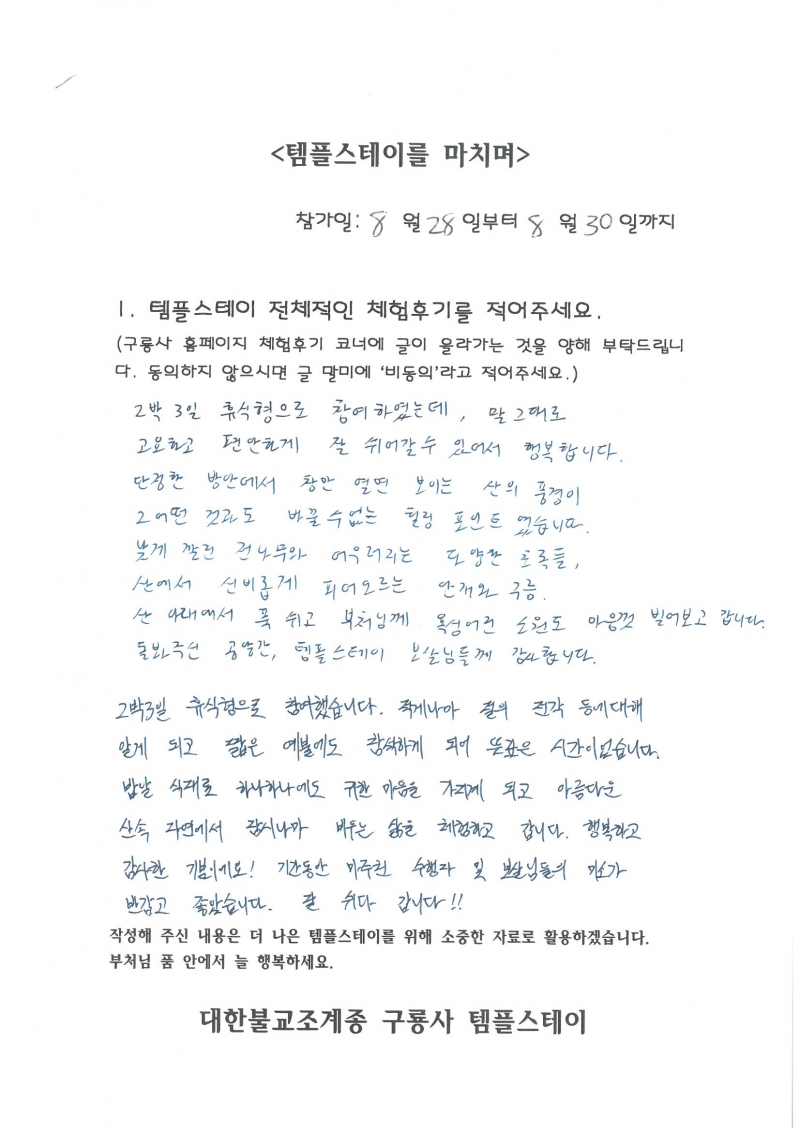 <템플스테이를 마치며>
참가일: 8 월 28 일부터 8 월 30 일까지
1. 템플스테이 전체적인 체험후기를 적어주세요.
(구룡사 홈페이지 체험후기 코너에 글이 올라가는 것을 양해 부탁드립니
다. 동의하지 않으시면 글 말미에 '비동의'라고 적어주세요.)
2박 3일 휴식형으로 참여하였는데, 말 그대로
고요하고 편안하게 잘 쉬어갈 수 있어서 행복합니다.
단정한 방안에서 창만 열면 보이는 산의 풍경이
그 어떤 것과도 바꿀 수 없는 힐링 포인트였습니다.
낮게 깔린 전나무와 어우러지는 다양한 초록들,
산에서 신비롭게 피어오르는 안개와 구름.
산 아래에서 푹 쉬고 부처님께 욕심어린 소원도 마음껏 빌어보고 갑니다.
돌봐주신 공양간, 템플스테이 보살님들께 감사합니다.
2박3일 휴식형으로 참여했습니다. 적게나마 절의 전각 등에 대해
알게 되고 짧은 예불에도 참석하게 되어 뜻깊은 시간이었습니다.
밥알 식재료 하나하나에도 귀한 마음을 가지게 되고 아름다운
산속 자연에서 잠시나마 비우는 삶을 체험하고 갑니다. 행복하고
감사한 기분이에요! 기간동안 마주친 수행자 및 보살님들의 미소가
반갑고 좋았습니다. 잘 쉬다 갑니다!!
작성해 주신 내용은 더 나은 템플스테이를 위해 소중한 자료로 활용하겠습니다.
부처님 품 안에서 늘 행복하세요.
대한불교조계종 구룡사 템플스테이